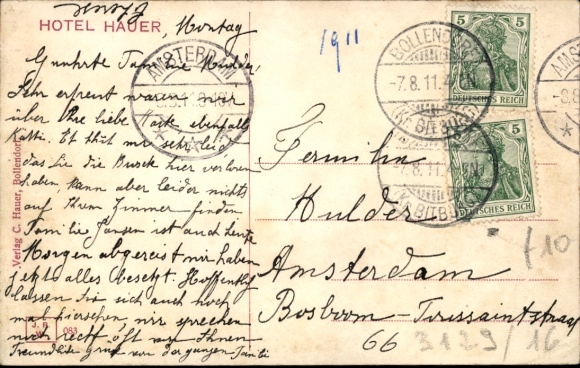 HOTEL HAUER,
Montag
1911
Geuhrte Familie Mulder,
Sehr erfreut waren wir
über Ihre liebe Karte ebenfalls
Kathi. Es thut mir sehr leid
das Sie die Busch hier verloren
haben kann aber leider nichts
auf Ihrem Zimmer finden
Familie Jansen ist auch heute
Morgen abgereist wir haben
jetzt alles besetzt. Hoffentlich
lassen Sie sich auch noch
mal hiersehen, wir sprechen
noch recht oft von Ihnen
Freundliche grüße von der ganzen Familie
Verlag C. Hauer, Bollendorf
J. B.
083
AMSTERDAM
BOLLENDORF
-7.8.11.
(Kr. BITBURG)
5
DEUTSCHES REICH
BOLLENDORF
-7.8.11.
(Kr. BITBURG)
5
DEUTSCHES REICH
Familie
Mulder
Amsterdam
Bosboom-Toussaintstraat
66
f10
3129/16